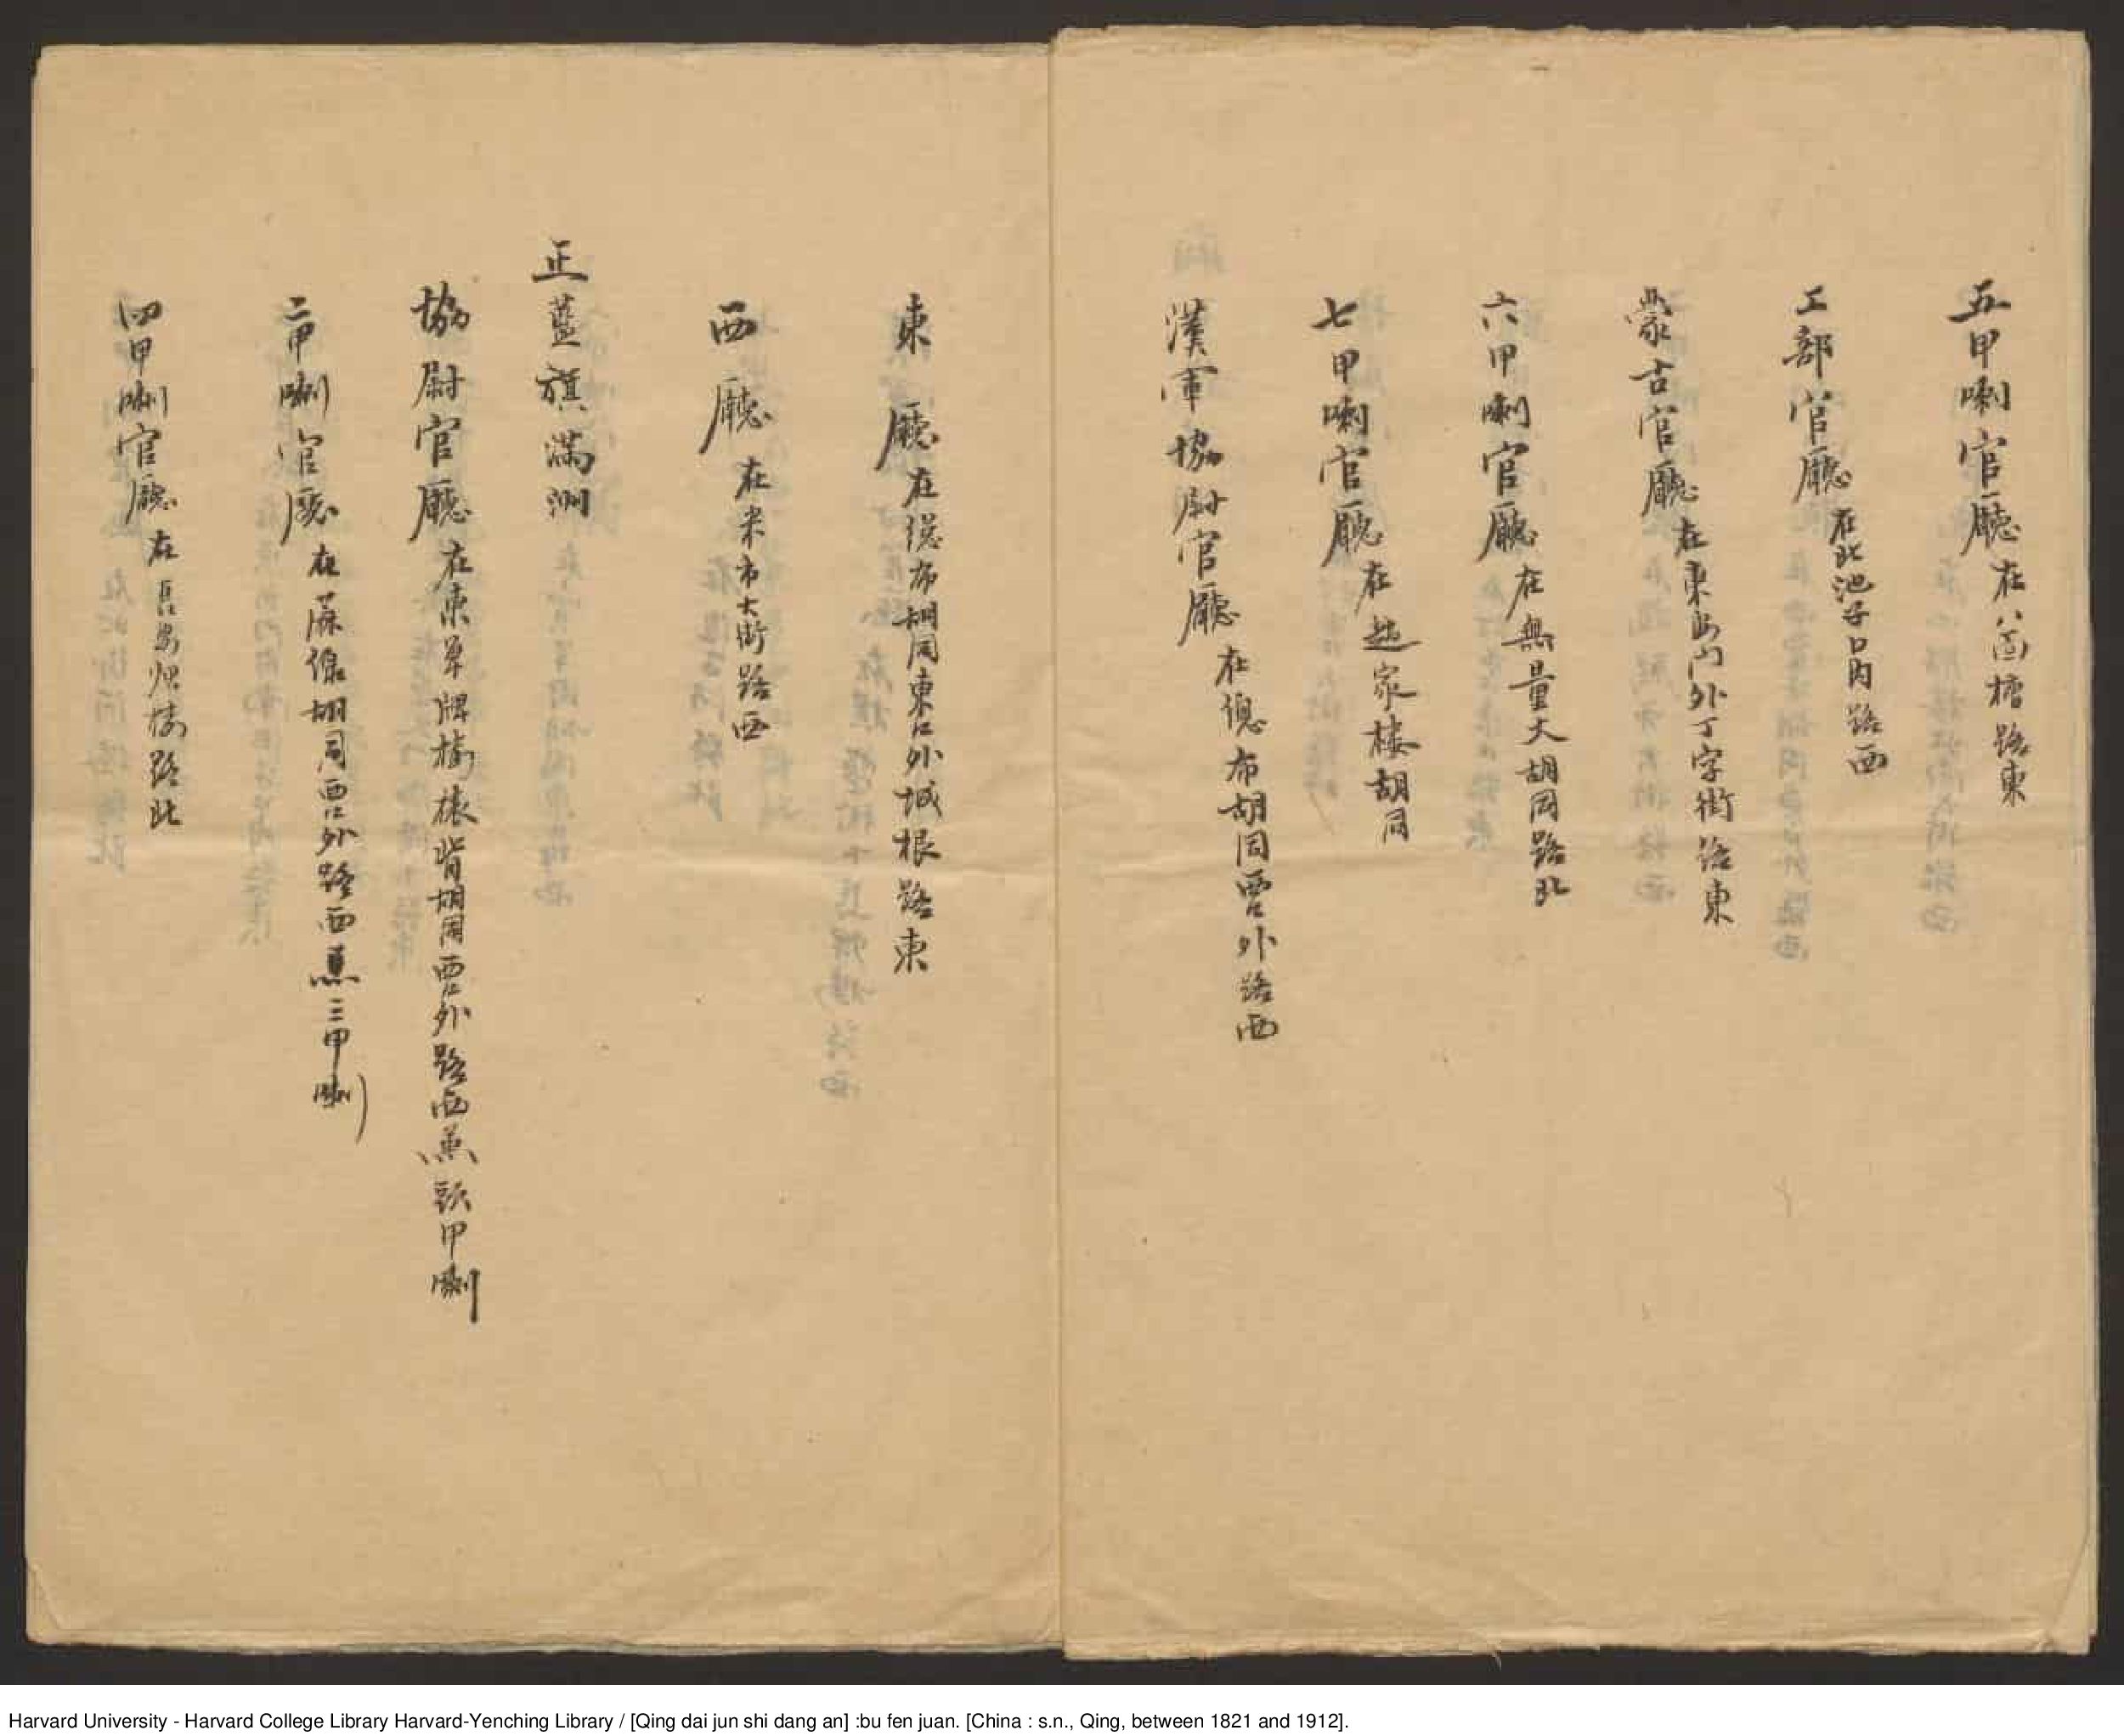 五甲喇官廳在八面槽路東
工部官廳在北池子口內路西
蒙古官廳在東安門外丁字街路東
六甲喇官廳在無量大胡同路北
七甲喇官廳在趙家樓胡同
漢軍協尉官廳在總布胡同西口外路西
東廳在總布胡同東口外城根路東
西廳在米市大街路西
正藍旗滿洲
協尉官廳在東單牌樓裱背胡同西口外路西兼頭甲喇
二甲喇官廳在蔴線胡同西口外路西兼三甲喇
四甲喇官廳在長安牌樓路北
Harvard University - Harvard College Library Harvard-Yenching Library / [Qing dai jun shi dang an] :bu fen juan. [China : s.n., Qing, between 1821 and 1912].